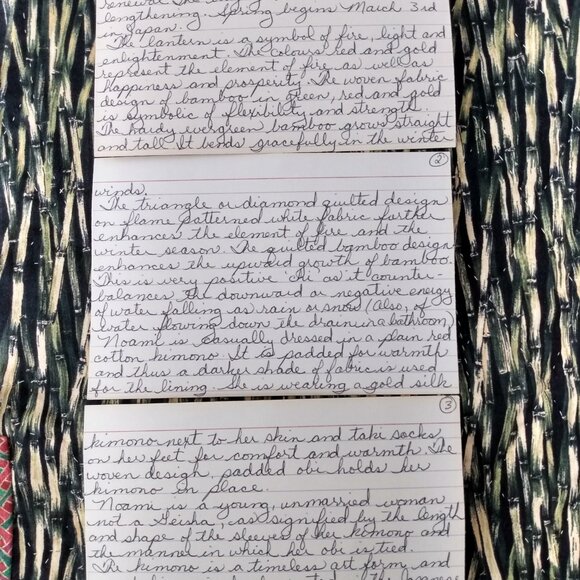 lengthening. Spring begins March 3rd
in Japan.
The lantern is a symbol of fire, light and
enlightenment. The colours red and gold
represent the element of fire as well as
happiness and prosperity. The woven fabric
design of bamboo in green, red and gold
is symbolic of flexibility and strength.
The hardy evergreen bamboo grows straight
and tall. It bends gracefully in the winter
2
winds.
The triangle or diamond quilted design
on flame patterned white fabric further
enhances the element of fire and the
winter season. The quilted bamboo design
enhances the upward growth of bamboo.
This is very positive 'chi' as it counter-
balances the downward or negative energy
of water falling as rain or snow (Also, of
water flowing down the drain in a bathroom)
Noami is casually dressed in a plain red
cotton kimono. It is padded for warmth
and thus a darker shade of fabric is used
for the lining. She is wearing a gold silk
3
kimono next to her skin and taki socks
on her feet for comfort and warmth. The
woven design, padded obi holds her
kimono in place.
Noami is a young, unmarried woman
not a Geisha, as signified by the length
and shape of the sleeves of her kimono and
the manner in which her obi is tied.
The kimono is a timeless art form, and